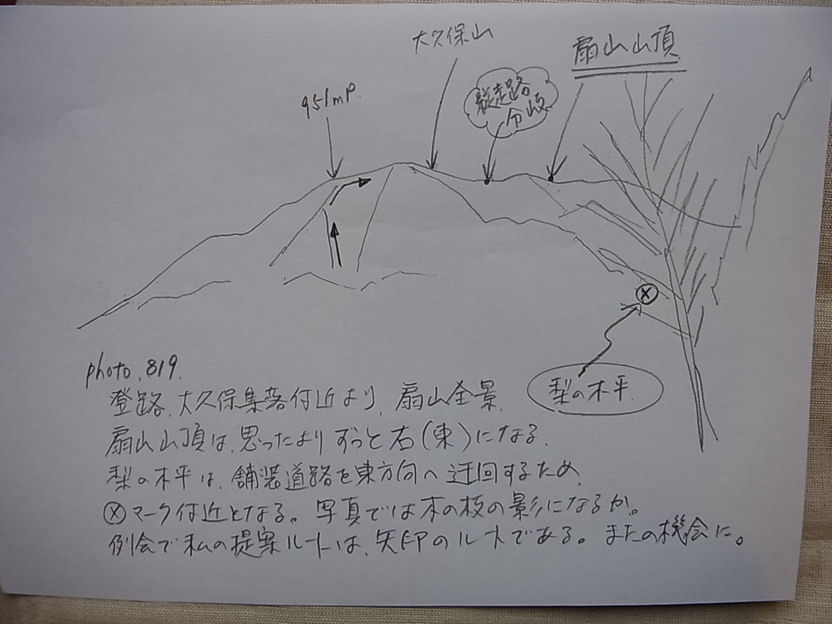 大久保山
扇山山頂
951mP.
縦走路
分岐
梨の木平
photo.819.
登路、大久保集落付近より、扇山全景.
扇山山頂は、思ったよりずっと右(東)になる.
梨の木平は、舗装道路を東方向へ迂回するため、
ⓧマーク付近となる。写真では木の枝の影になるか。
例会で私の提案ルートは、矢印のルートである。またの機会に。